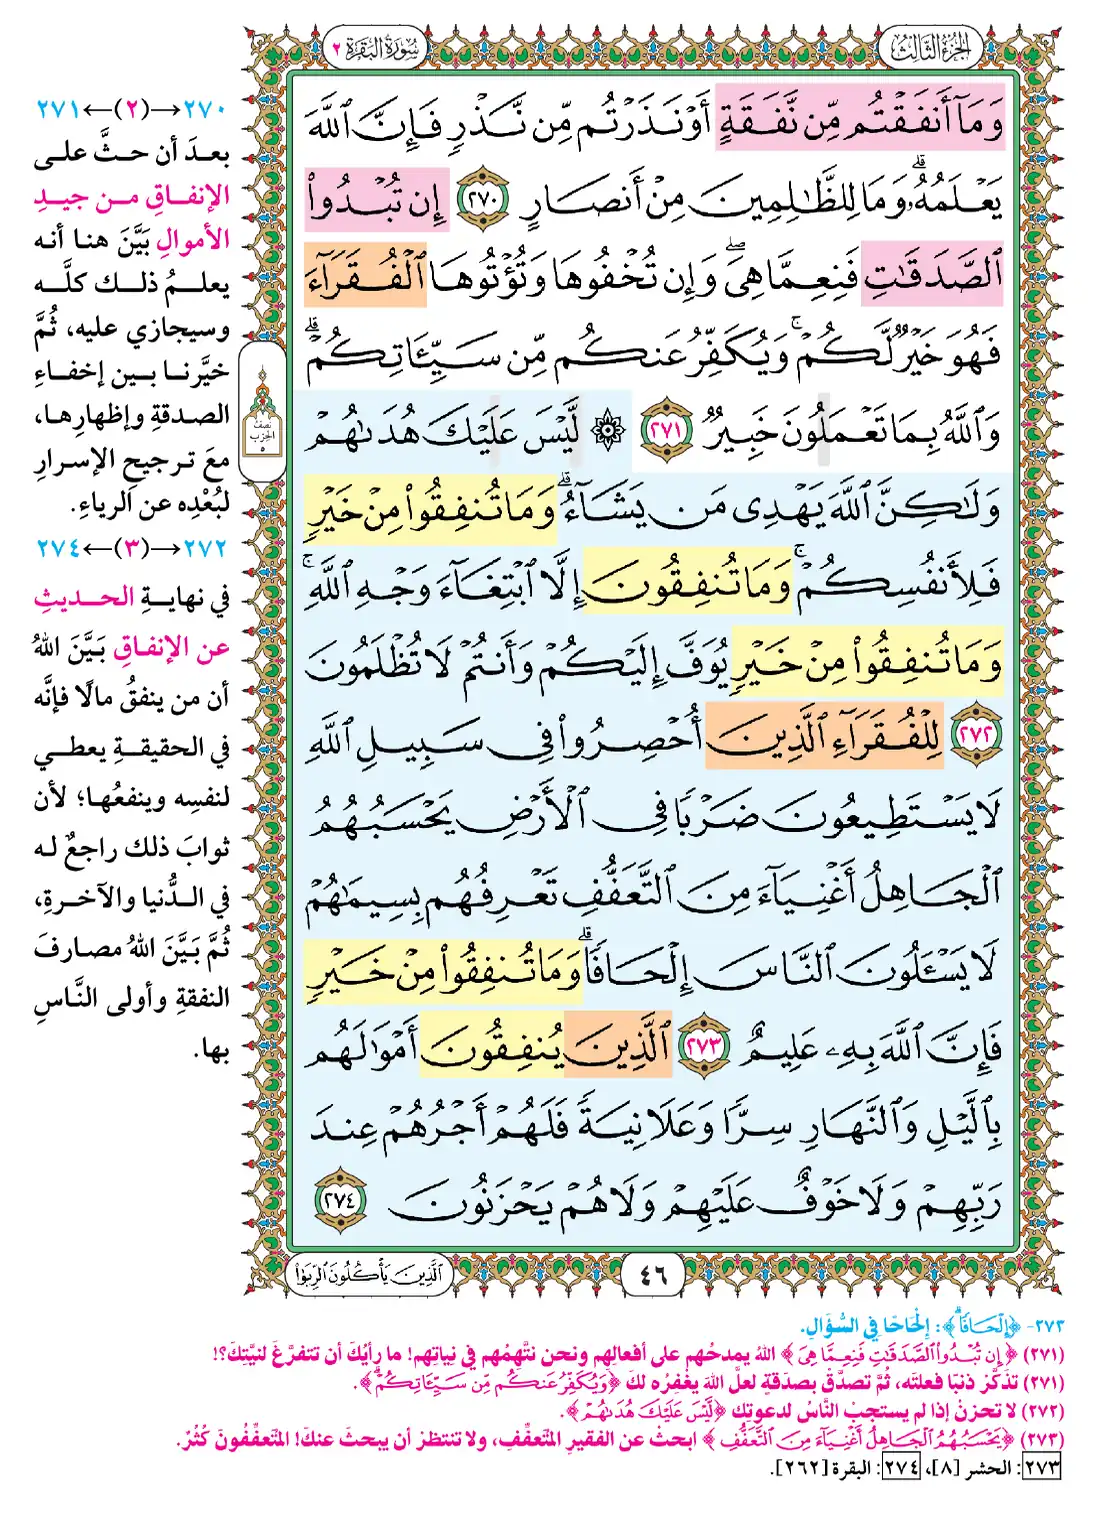 الجزء الثالث
سورة البقرة ٢
وَمَآ أَنفَقْتُم مِّن نَّفَقَةٍ أَوْ نَذَرْتُم مِّن نَّذْرٍ فَإِنَّ ٱللَّهَ
يَعْلَمُهُۥۗ وَمَا لِلظَّٰلِمِينَ مِنْ أَنصَارٍ ٢٧٠ إِن تُبْدُوا۟
ٱلصَّدَقَٰتِ فَنِعِمَّا هِىَۖ وَإِن تُخْفُوهَا وَتُؤْتُوهَا ٱلْفُقَرَآءَ
فَهُوَ خَيْرٌ لَّكُمْۚ وَيُكَفِّرُ عَنكُم مِّن سَيِّـَٔاتِكُمْۗ
وَٱللَّهُ بِمَا تَعْمَلُونَ خَبِيرٌ ٢٧١ ۞ لَّيْسَ عَلَيْكَ هُدَىٰهُمْ
وَلَٰكِنَّ ٱللَّهَ يَهْدِى مَن يَشَآءُۗ وَمَا تُنفِقُوا۟ مِنْ خَيْرٍ
فَلِأَنفُسِكُمْۚ وَمَا تُنفِقُونَ إِلَّا ٱبْتِغَآءَ وَجْهِ ٱللَّهِۚ
وَمَا تُنفِقُوا۟ مِنْ خَيْرٍ يُوَفَّ إِلَيْكُمْ وَأَنتُمْ لَا تُظْلَمُونَ
٢٧٢ لِلْفُقَرَآءِ ٱلَّذِينَ أُحْصِرُوا۟ فِى سَبِيلِ ٱللَّهِ
لَا يَسْتَطِيعُونَ ضَرْبًا فِى ٱلْأَرْضِ يَحْسَبُهُمُ
ٱلْجَاهِلُ أَغْنِيَآءَ مِنَ ٱلتَّعَفُّفِ تَعْرِفُهُم بِسِيمَٰهُمْ
لَا يَسْـَٔلُونَ ٱلنَّاسَ إِلْحَافًاۗ وَمَا تُنفِقُوا۟ مِنْ خَيْرٍ
فَإِنَّ ٱللَّهَ بِهِۦ عَلِيمٌ ٢٧٣ ٱلَّذِينَ يُنفِقُونَ أَمْوَٰلَهُم
بِٱلَّيْلِ وَٱلنَّهَارِ سِرًّا وَعَلَانِيَةً فَلَهُمْ أَجْرُهُمْ عِندَ
رَبِّهِمْ وَلَا خَوْفٌ عَلَيْهِمْ وَلَا هُمْ يَحْزَنُونَ ٢٧٤
نصف
الحزب
٥
٤٦
ٱلَّذِينَ يَأْكُلُونَ ٱلرِّبَوٰا۟
٢٧٠→(٢)←٢٧١
بعدَ أن حثَّ على
الإنفاقِ من جيدِ
الأموالِ بَيَّنَ هنا أنه
يعلمُ ذلك كلَّه
وسيجازي عليه، ثُمَّ
خيَّرنا بين إخفاءِ
الصدقةِ وإظهارِها،
معَ ترجيحِ الإسرارِ
لبُعْدِه عن الرياءِ.
٢٧٢→(٣)←٢٧٤
في نهايةِ الحديثِ
عن الإنفاقِ بَيَّنَ اللهُ
أن من ينفقُ مالًا فإنَّه
في الحقيقةِ يعطي
لنفسِه وينفعُها؛ لأن
ثوابَ ذلك راجعٌ له
في الدُّنيا والآخرةِ،
ثُمَّ بَيَّنَ اللهُ مصارفَ
النفقةِ وأولى النَّاسِ
بها.
٢٧٣- ﴿إِلْحَافًاۗ﴾: إِلْحَاحًا فِي السُّؤَالِ.
(٢٧١) ﴿إِن تُبْدُوا۟ ٱلصَّدَقَٰتِ فَنِعِمَّا هِىَ﴾ اللهُ يمدحُهم على أفعالِهم ونحن نتَّهِمُهم في نِياتِهم! ما رأيُكَ أن تتفرَّغَ لنيَّتِكَ؟!
(٢٧١) تذكَّرْ ذنبًا فعلتَه، ثُمَّ تصدَّقْ بصدقةٍ لعلَّ اللهَ يغْفِرُه لكَ ﴿وَيُكَفِّرُ عَنكُم مِّن سَيِّـَٔاتِكُمْۗ﴾.
(٢٧٢) لا تحزنْ إذا لم يستجبْ النَّاسُ لدعوتِك ﴿لَّيْسَ عَلَيْكَ هُدَىٰهُمْ﴾.
(٢٧٣) ﴿يَحْسَبُهُمُ ٱلْجَاهِلُ أَغْنِيَآءَ مِنَ ٱلتَّعَفُّفِ﴾ ابحثْ عن الفقيرِ المتَعفِّفِ، ولا تنتظرْ أن يبحثَ عنكَ! المتَعفِّفُونَ كُثُرٌ.
٢٧٣: الحشر [٨]، ٢٧٤: البقرة [٢٦٢].